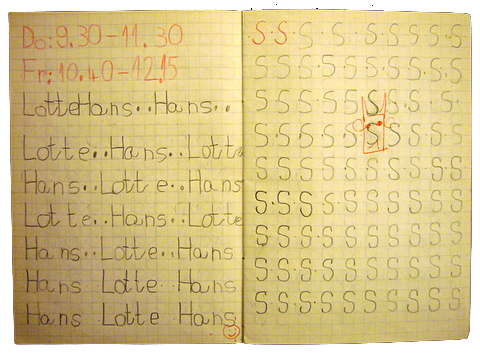 Do:9.30-11.30
Fr:10.40-12.15
LotteHans..Hans..
Lotte..Hans..Lotte
Hans..Lotte..Hans
Lotte..Hans..Lotte
Hans..Lotte..Hans
Hans Lotte Hans
Hans Lotte Hans
S.S.S.S.S.S.S.S.S
S.S.S.S.S.S.S.S.S
S.S.S.S.S.S.S.S.S
S.S.S.S.S.S.S.S.S
S.S.S.S.S.S.S.S.S
S.S.S.S.S.S.S.S.S
S.S.S.S.S.S.S.S.S
S.S.S.S.S.S.S.S.S
S.S.S.S.S.S.S.S.S